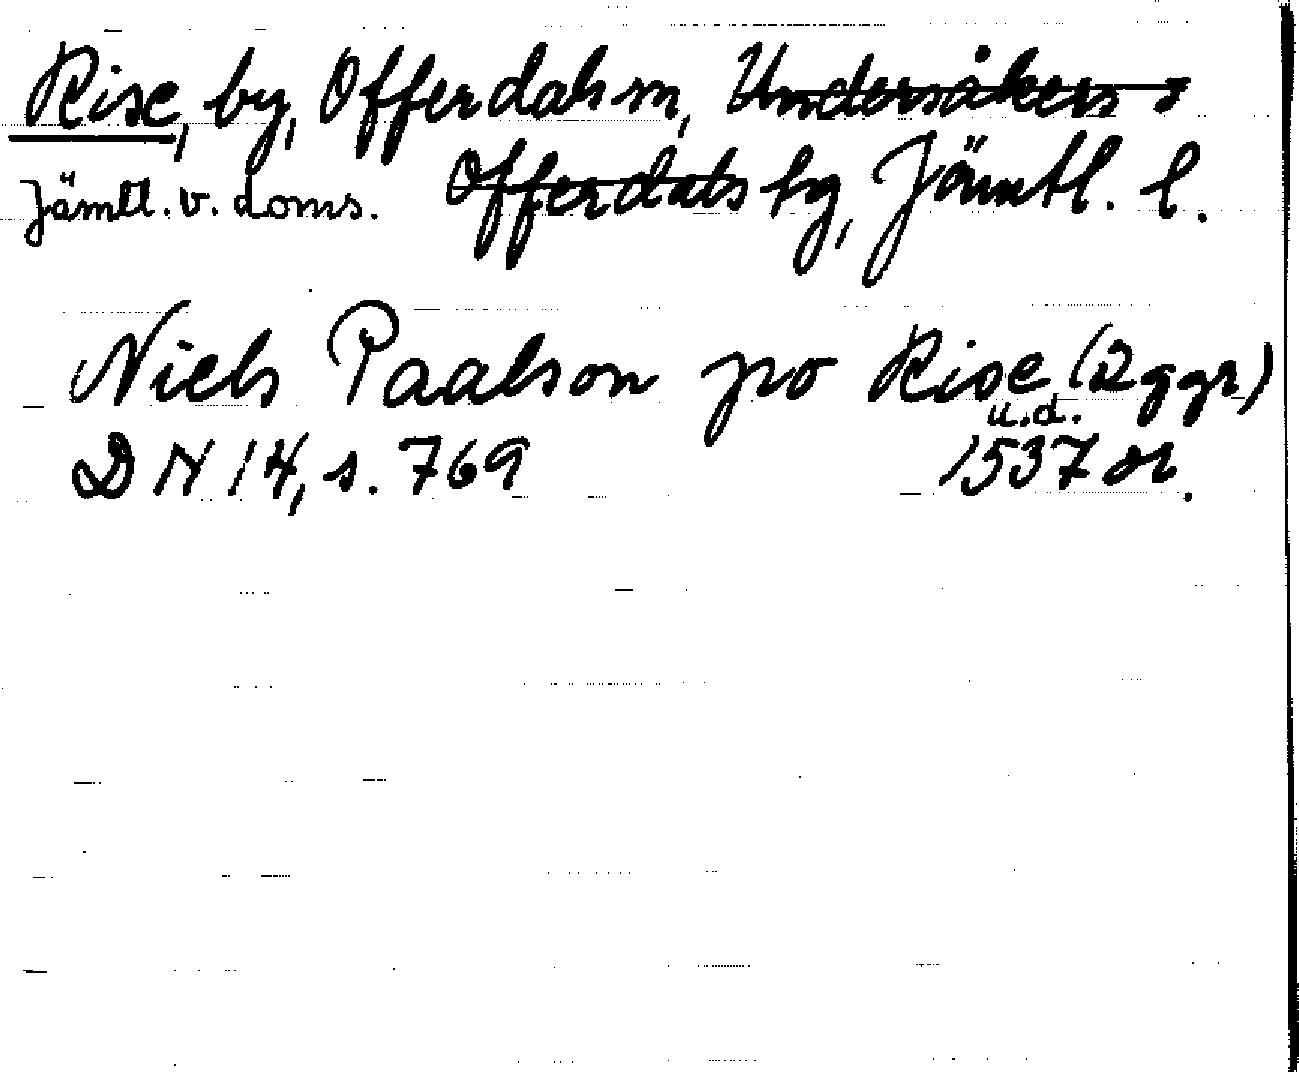 Rise, by, Offerdals sn, Undersåkers o
Jämtl. v. doms. Offerdals hg, Jämtl. l.
Niels Paalson po Rise (2 ggr)
u.d.
DN 14, s. 769 1537 or.